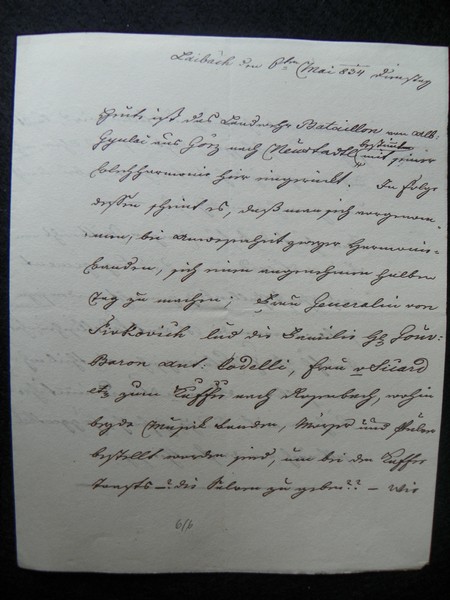 Laibach den 6ten Mai 834 Dienstag
Heute ist das Landwehr Bataillon von Alb:
Gyulai aus Görz nach Neustadtl bestimmt mit seiner
Blechharmonie hier eingerückt. In Folge
dessen scheint es, daß man sich vorgenom-
men, bei Anwesenheit zweyer Harmonie-
banden, sich einen angenehmen halben
Tag zu machen; Frau Generalin von
lud die Familie H. Gouv:
Baron Ant: Codelli, Frau v Sicard
etz zum Kaffee nach Rosenbach, wohin
beyde Musik banden, Mörser und Pulver
bestellt worden sind, um bei den Kaffee
Toasts –? die Salven zu geben?? – Wie
6/6